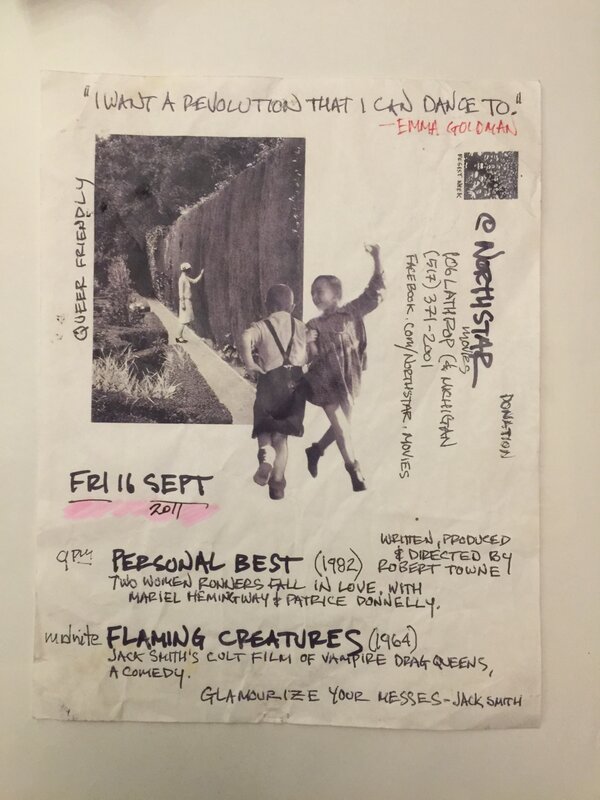 "I WANT A REVOLUTION THAT I CAN DANCE TO."
—EMMA GOLDMAN
QUEER FRIENDLY
@ NORTHSTAR
MOVIES
106 LATHROP (& MICHIGAN
(517) 371-2001
FACEBOOK.COM/NORTHSTAR.MOVIES
DONATION
FRI 16 SEPT
2011
9PM PERSONAL BEST (1982)
WRITTEN, PRODUCED
& DIRECTED BY
ROBERT TOWNE
TWO WOMEN RUNNERS FALL IN LOVE, WITH
MARIEL HEMINGWAY & PATRICE DONNELLY.
midnite FLAMING CREATURES (1964)
JACK SMITH'S CULT FILM OF VAMPIRE DRAG QUEENS,
A COMEDY.
GLAMOURIZE YOUR MESSES - JACK SMITH